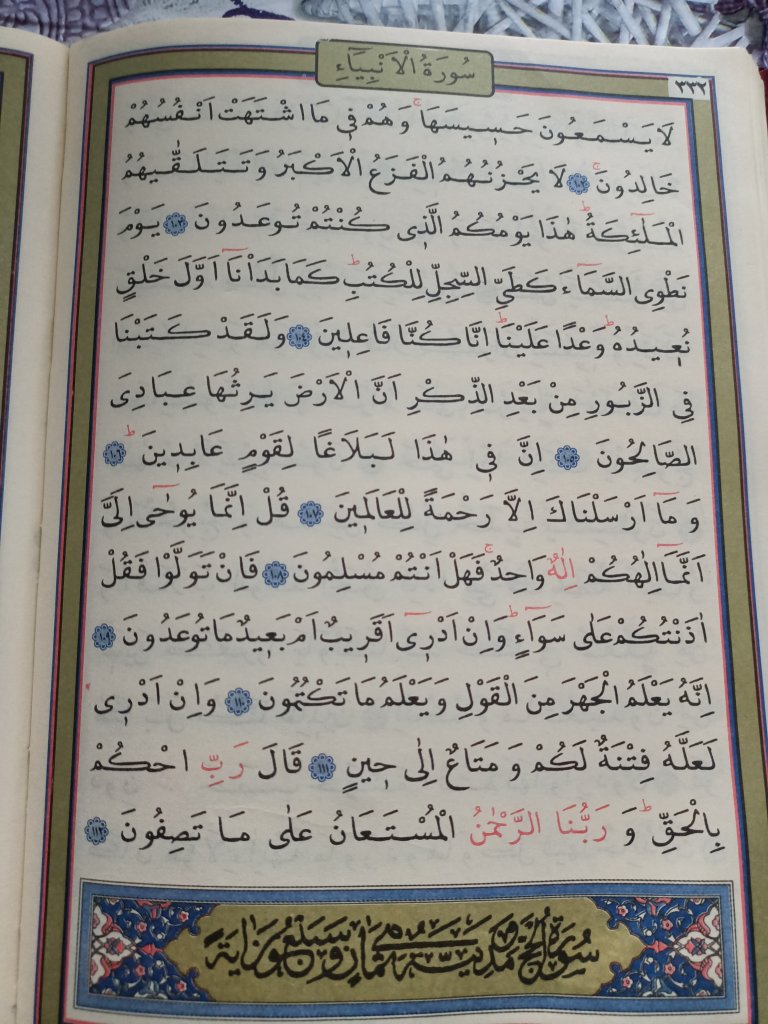 سُورَةُ الْاَنْبِيَٓاءِ
٣٣٢
لَا يَسْمَعُونَ حَسٖيسَهَاۚ وَهُمْ فٖى مَا اشْتَهَتْ اَنْفُسُهُمْ
خَالِدُونَۚ ﴿١٠٢﴾ لَا يَحْزُنُهُمُ الْفَزَعُ الْاَكْبَرُ وَتَتَلَقّٰيهُمُ
الْمَلٰٓئِكَةُؕ هٰذَا يَوْمُكُمُ الَّذٖى كُنْتُمْ تُوعَدُونَ ﴿١٠٣﴾ يَوْمَ
نَطْوِى السَّمَٓاءَ كَطَىِّ السِّجِلِّ لِلْكُتُبِؕ كَمَا بَدَاْنَٓا اَوَّلَ خَلْقٍ
نُعٖيدُهُؕ وَعْدًا عَلَيْنَاؕ اِنَّا كُنَّا فَاعِلٖينَ ﴿١٠٤﴾ وَلَقَدْ كَتَبْنَا
فِى الزَّبُورِ مِنْ بَعْدِ الذِّكْرِ اَنَّ الْاَرْضَ يَرِثُهَا عِبَادِىَ
الصَّالِحُونَ ﴿١٠٥﴾ اِنَّ فٖى هٰذَا لَبَلَاغًا لِقَوْمٍ عَابِدٖينَؕ ﴿١٠٦﴾
وَمَٓا اَرْسَلْنَاكَ اِلَّا رَحْمَةً لِلْعَالَمٖينَ ﴿١٠٧﴾ قُلْ اِنَّمَا يُوحٰٓى اِلَىَّ
اَنَّمَٓا اِلٰهُكُمْ اِلٰهٌ وَاحِدٌۚ فَهَلْ اَنْتُمْ مُسْلِمُونَ ﴿١٠٨﴾ فَاِنْ تَوَلَّوْا فَقُلْ
اٰذَنْتُكُمْ عَلٰى سَوَٓاءٍؕ وَاِنْ اَدْرٖٓى اَقَرٖيبٌ اَمْ بَعٖيدٌ مَا تُوعَدُونَ ﴿١٠٩﴾
اِنَّهُ يَعْلَمُ الْجَهْرَ مِنَ الْقَوْلِ وَيَعْلَمُ مَا تَكْتُمُونَ ﴿١١٠﴾ وَاِنْ اَدْرٖى
لَعَلَّهُ فِتْنَةٌ لَكُمْ وَمَتَاعٌ اِلٰى حٖينٍ ﴿١١١﴾ قَالَ رَبِّ احْكُمْ
بِالْحَقِّؕ وَرَبُّنَا الرَّحْمٰنُ الْمُسْتَعَانُ عَلٰى مَا تَصِفُونَ ﴿١١٢﴾
سُورَةُ الْحَجِّ مَدَنِيَّةٌ وَهِىَ ثَمَانٍ وَسَبْعُونَ اٰيَةً